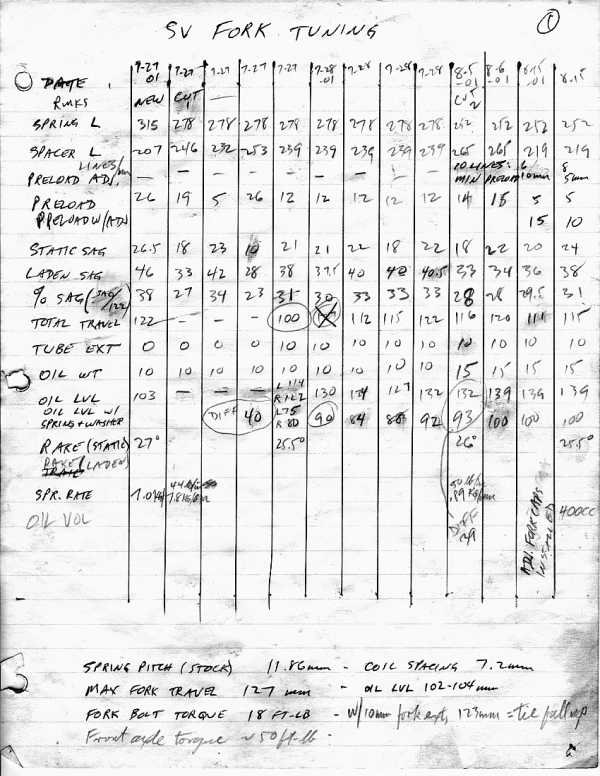 SV FORK TUNING ①
DATE 7-27-01 7-27 7-27 7-27 7-27 7-28-01 7-28 7-28 7-28 8-5-01 8-6-01 8-15-01 8-15
RMKS NEW CUT — CUT 2
SPRING L 315 278 278 278 278 278 278 278 278 252 252 252 252
SPACER L 207 246 232 253 239 239 239 239 239 265 265 219 219
LINES/mm 10 LINES: 6 8
PRELOAD ADJ. — — — — — — — — — MIN PRELOAD 10mm 5mm
PRELOAD 26 19 5 26 12 12 12 12 12 14 18 5 5
PRELOAD W/ADJ 15 10
STATIC SAG 26.5 18 23 10 21 21 22 18 22 18 22 20 24
LADEN SAG 46 33 42 28 38 37.5 40 40 40.5 33 34 36 38
% SAG (SAG/122) 38 27 34 23 31 30 33 33 33 28 28 29.5 31
TOTAL TRAVEL 122 — — — 100 112 115 122 116 120 111 115
TUBE EXT 0 0 0 0 10 10 10 10 10 10 10 10 10
OIL WT 10 10 10 10 10 10 10 10 10 15 15 15 15
L 114
OIL LVL 103 — — — R 122 130 124 127 132 132 139 139 139
OIL LVL W/ SPRING + WASHER DIFF 40 L 75 R 80 90 84 86 92 93 100 100 100
RAKE (STATIC) 27° 25.5° 26° 25.5°
RAKE (LADEN)
TRAIL
SPR. RATE 50 lb/in .89 kg/mm
OIL VOL DIFF 39 ADJ. FORK CAPS INSTALLED 400CC
SPRING PITCH (STOCK) 11.86mm - COIL SPACING 7.2mm
MAX FORK TRAVEL 127 mm - OIL LVL 102-104mm
FORK BOLT TORQUE 18 FT-LB - W/10mm fork ext, 123mm = tie
Front axle torque ~50 ft-lb